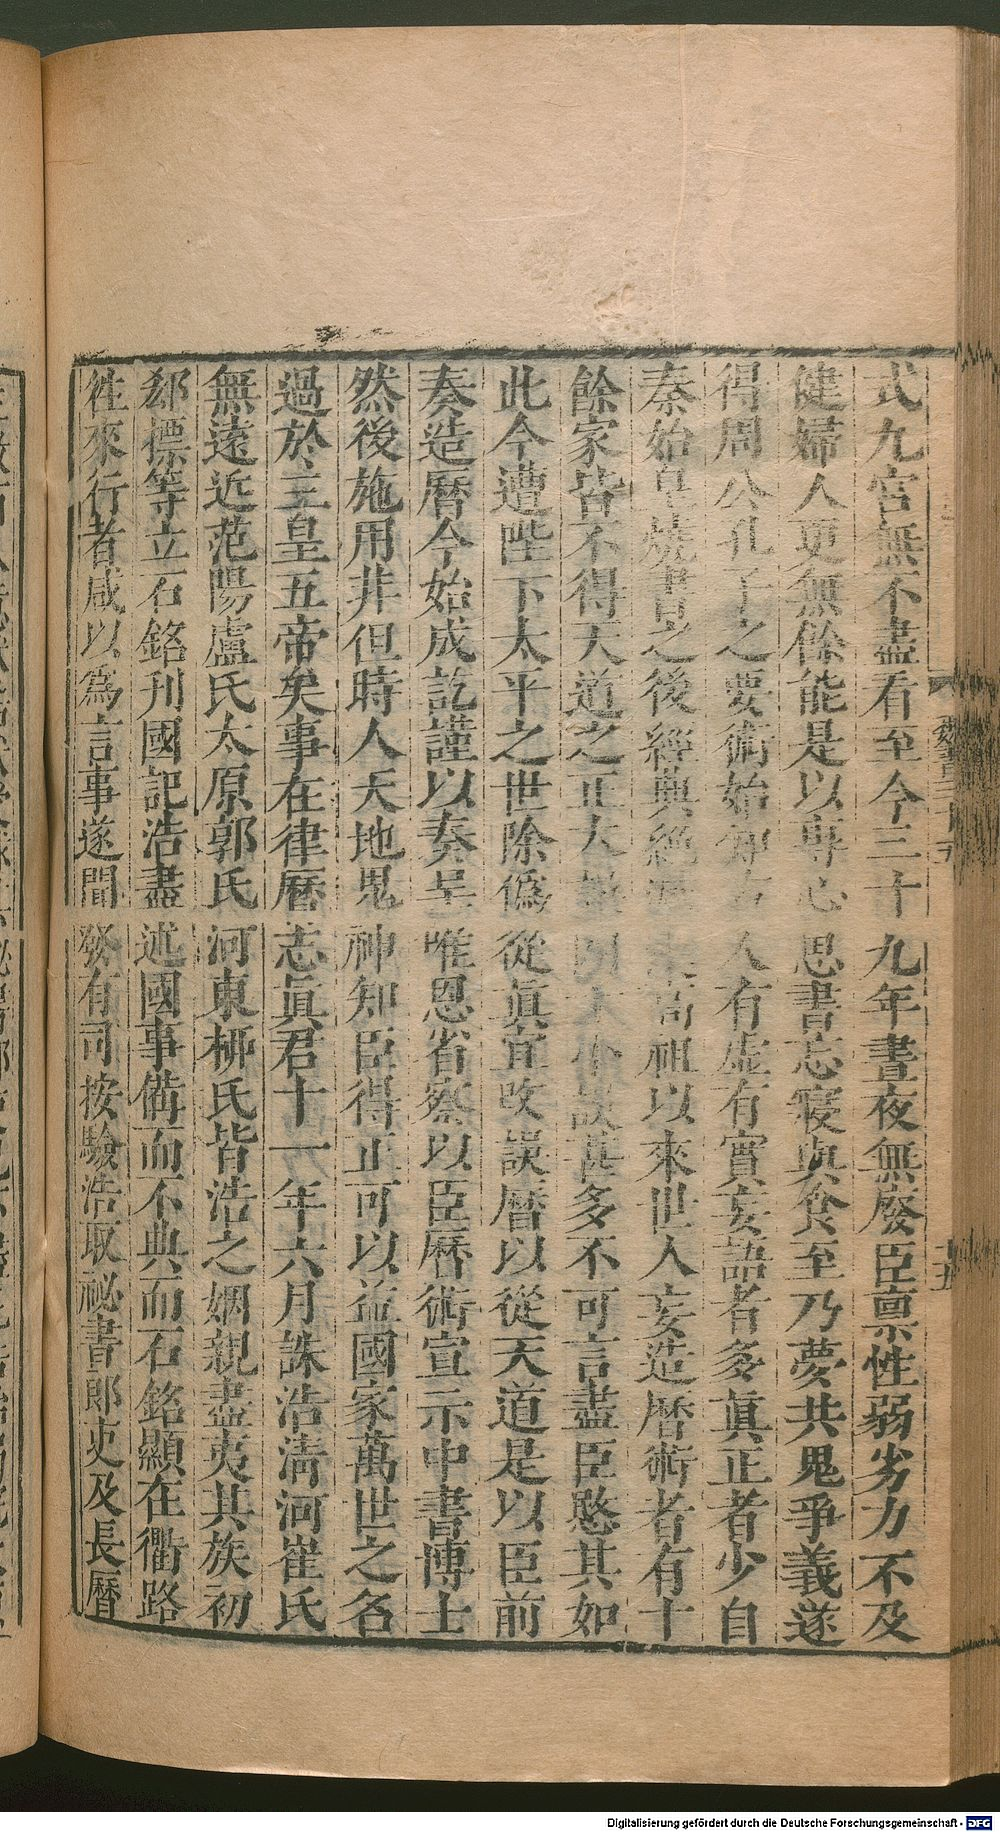 式九宮無不盡看至今三十九年晝夜無廢臣禀性弱劣力不及
健婦人更無餘能是以專心思書忘寢與食至乃夢共鬼爭義遂
得周公孔子之要術始知古人有虛有實妄語者多眞正者少自
秦始皇燒書之後經典絕 高祖以來世人妄造曆術者有十
餘家皆不得天道之正大 小誤甚多不可言盡臣愍其如
此今遭陛下太平之世除僞從眞宜改誤曆以從天道是以臣前
奏造曆今始成訖謹以奏呈唯恩省察以臣曆術宣示中書博士
然後施用并但時人天地鬼神知臣得正可以益國家萬世之名
過於三皇五帝矣事在律曆志眞君十一年六月誅浩淸河崔氏
無遠近范陽盧氏太原郭氏河東柳氏皆浩之姻親盡夷其族初
郄摽等立石銘刋國記浩盡述國事備而不典而石銘顯在衢路
徃來行者咸以爲言事遂聞發有司按驗浩取祕書郎吏及長曆
Digitalisierung gefördert durch die Deutsche Forschungsgemeinschaft - DFG